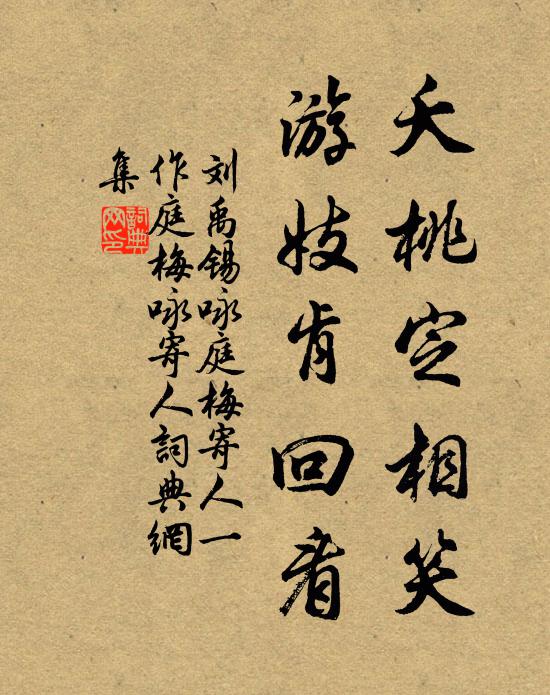 夭桃定相笑
游妓肯回看
刘禹锡咏庭梅寄人一
作庭梅咏寄人詞典網
集
詞典網印